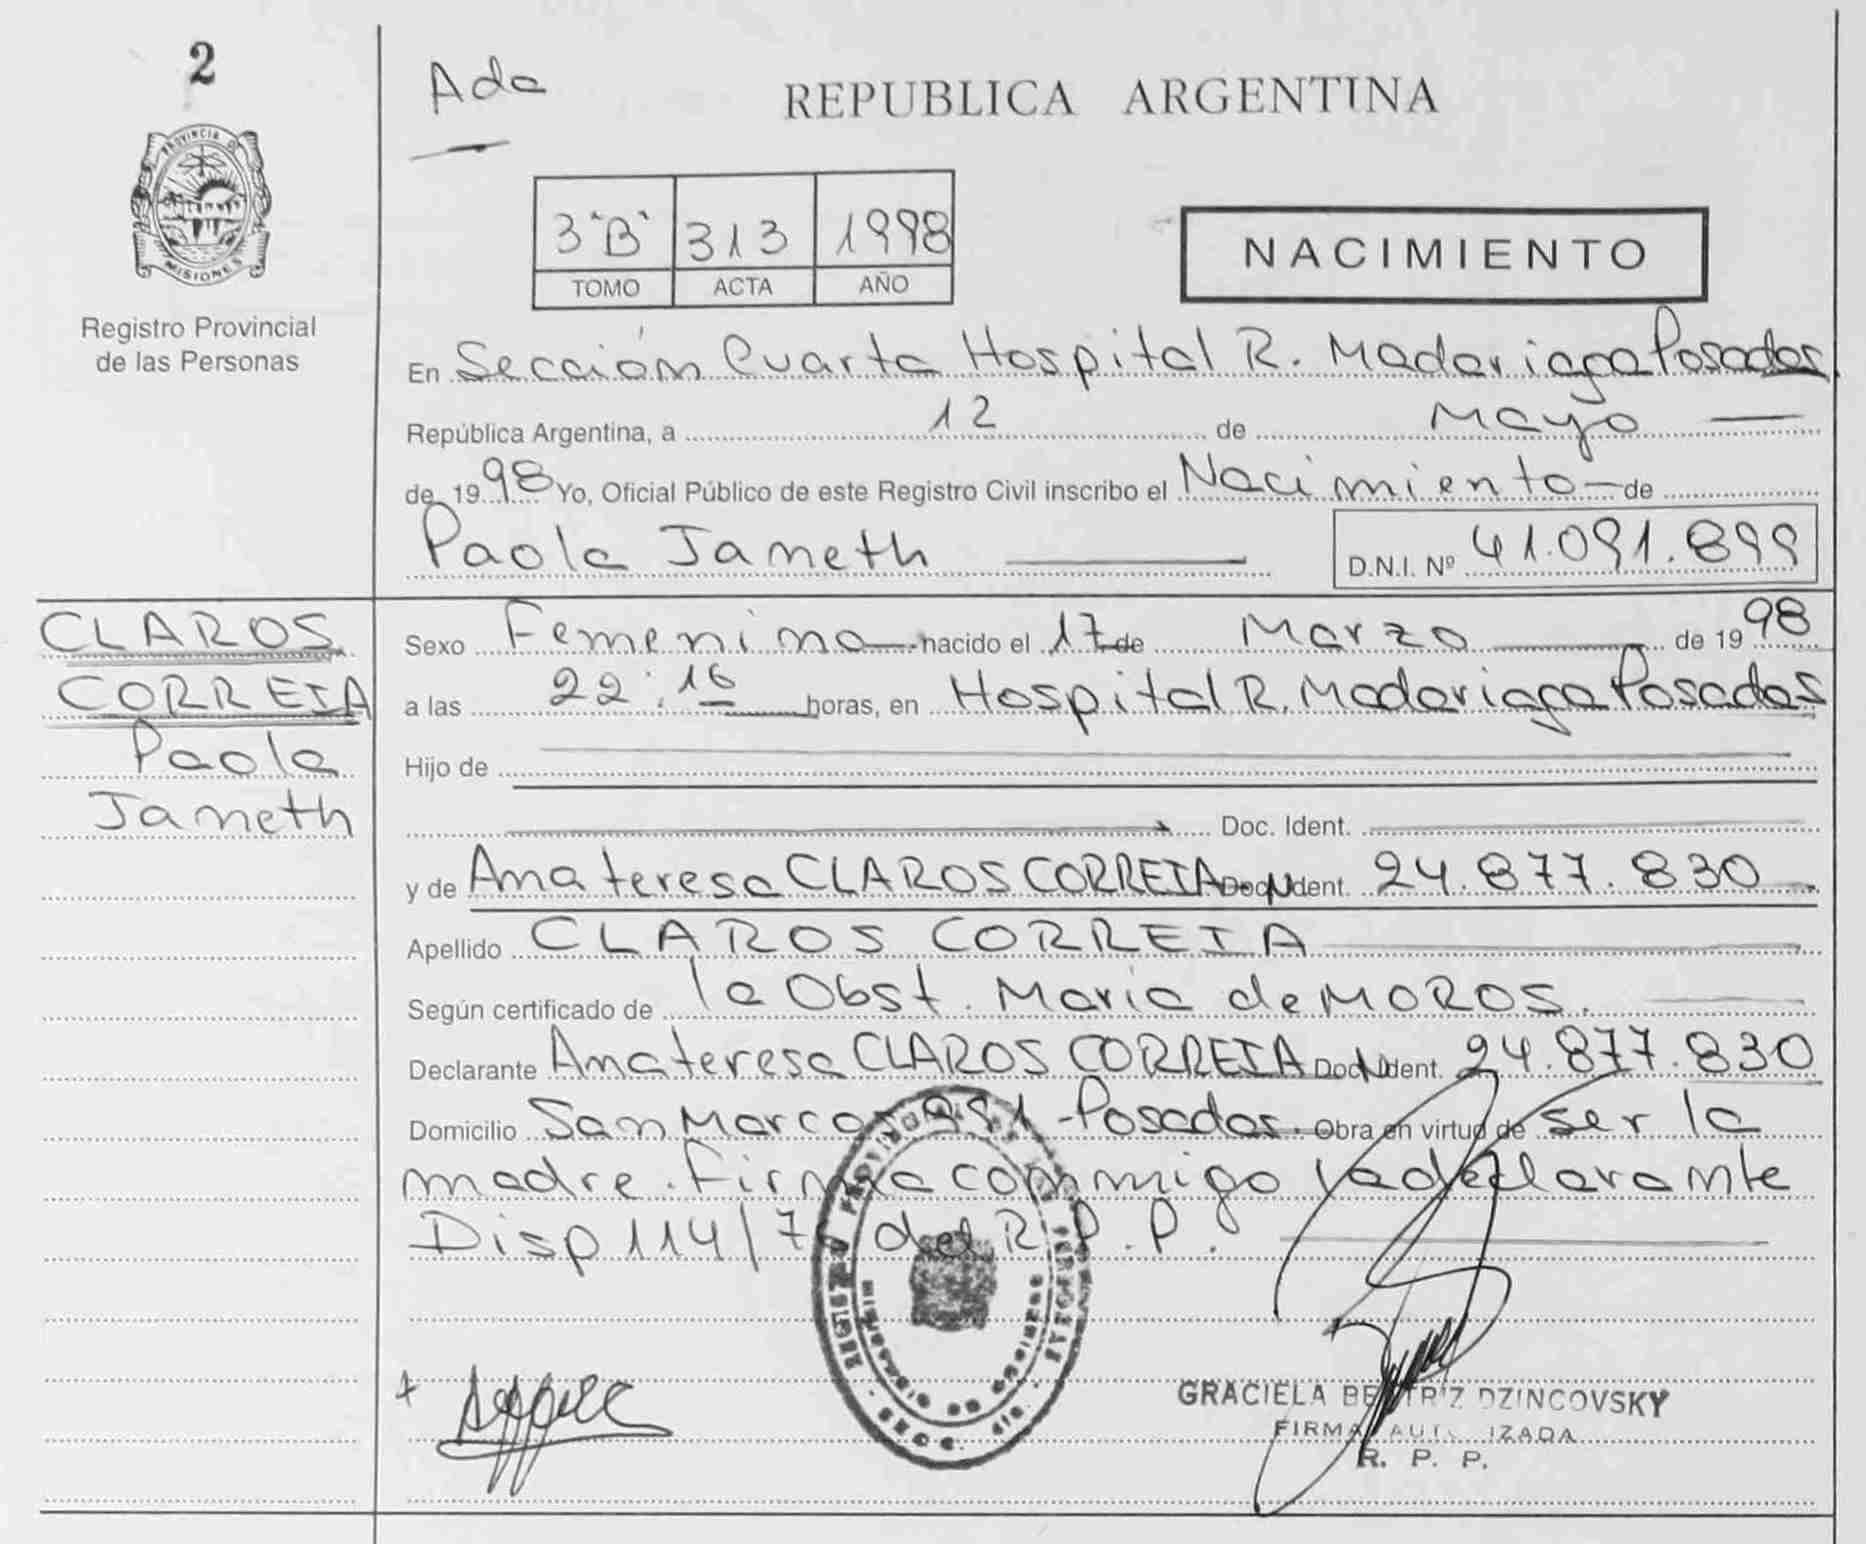 2
PROVINCIA DE
MISIONES
Registro Provincial
de las Personas
Ada
REPUBLICA ARGENTINA
3"B" 313 1998
TOMO ACTA AÑO
NACIMIENTO
En Sección Cuarta Hospital R. Madariaga Posadas
República Argentina, a 12 de Mayo
de 1998 Yo, Oficial Público de este Registro Civil inscribo el Nacimiento de
Paola Janeth D.N.I. Nº 41.091.899
CLAROS
CORREIA
Paola
Janeth
Sexo Femenino nacido el 17 de Marzo de 1998
a las 22:16 horas, en Hospital R. Madariaga Posadas
Hijo de
Doc. Ident.
y de Ana teresa CLAROS CORREIA Doc. Ident. 24.877.830
Apellido CLAROS CORREIA
Según certificado de la Obst. Maria de MOROS.
Declarante Ana teresa CLAROS CORREIA Doc. Ident. 24.877.830
Domicilio San Marcos 991 - Posadas. Obra en virtud de ser la
madre. Firma conmigo la declarante
Disp 114/7 del R.P.P.
GRACIELA BEATRIZ DZINCOVSKY
FIRMA AUTORIZADA
R. P. P.